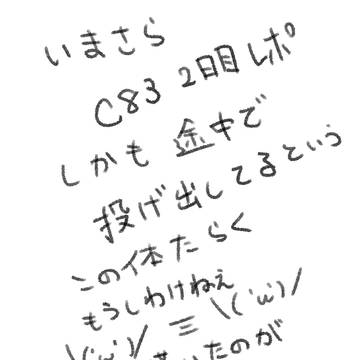 いまさら
C83 2日目レポ
しかも途中で
投げ出してるという
この体たらく
もうしわけねえ
\('ω')/ 三 \('ω')/
たのが